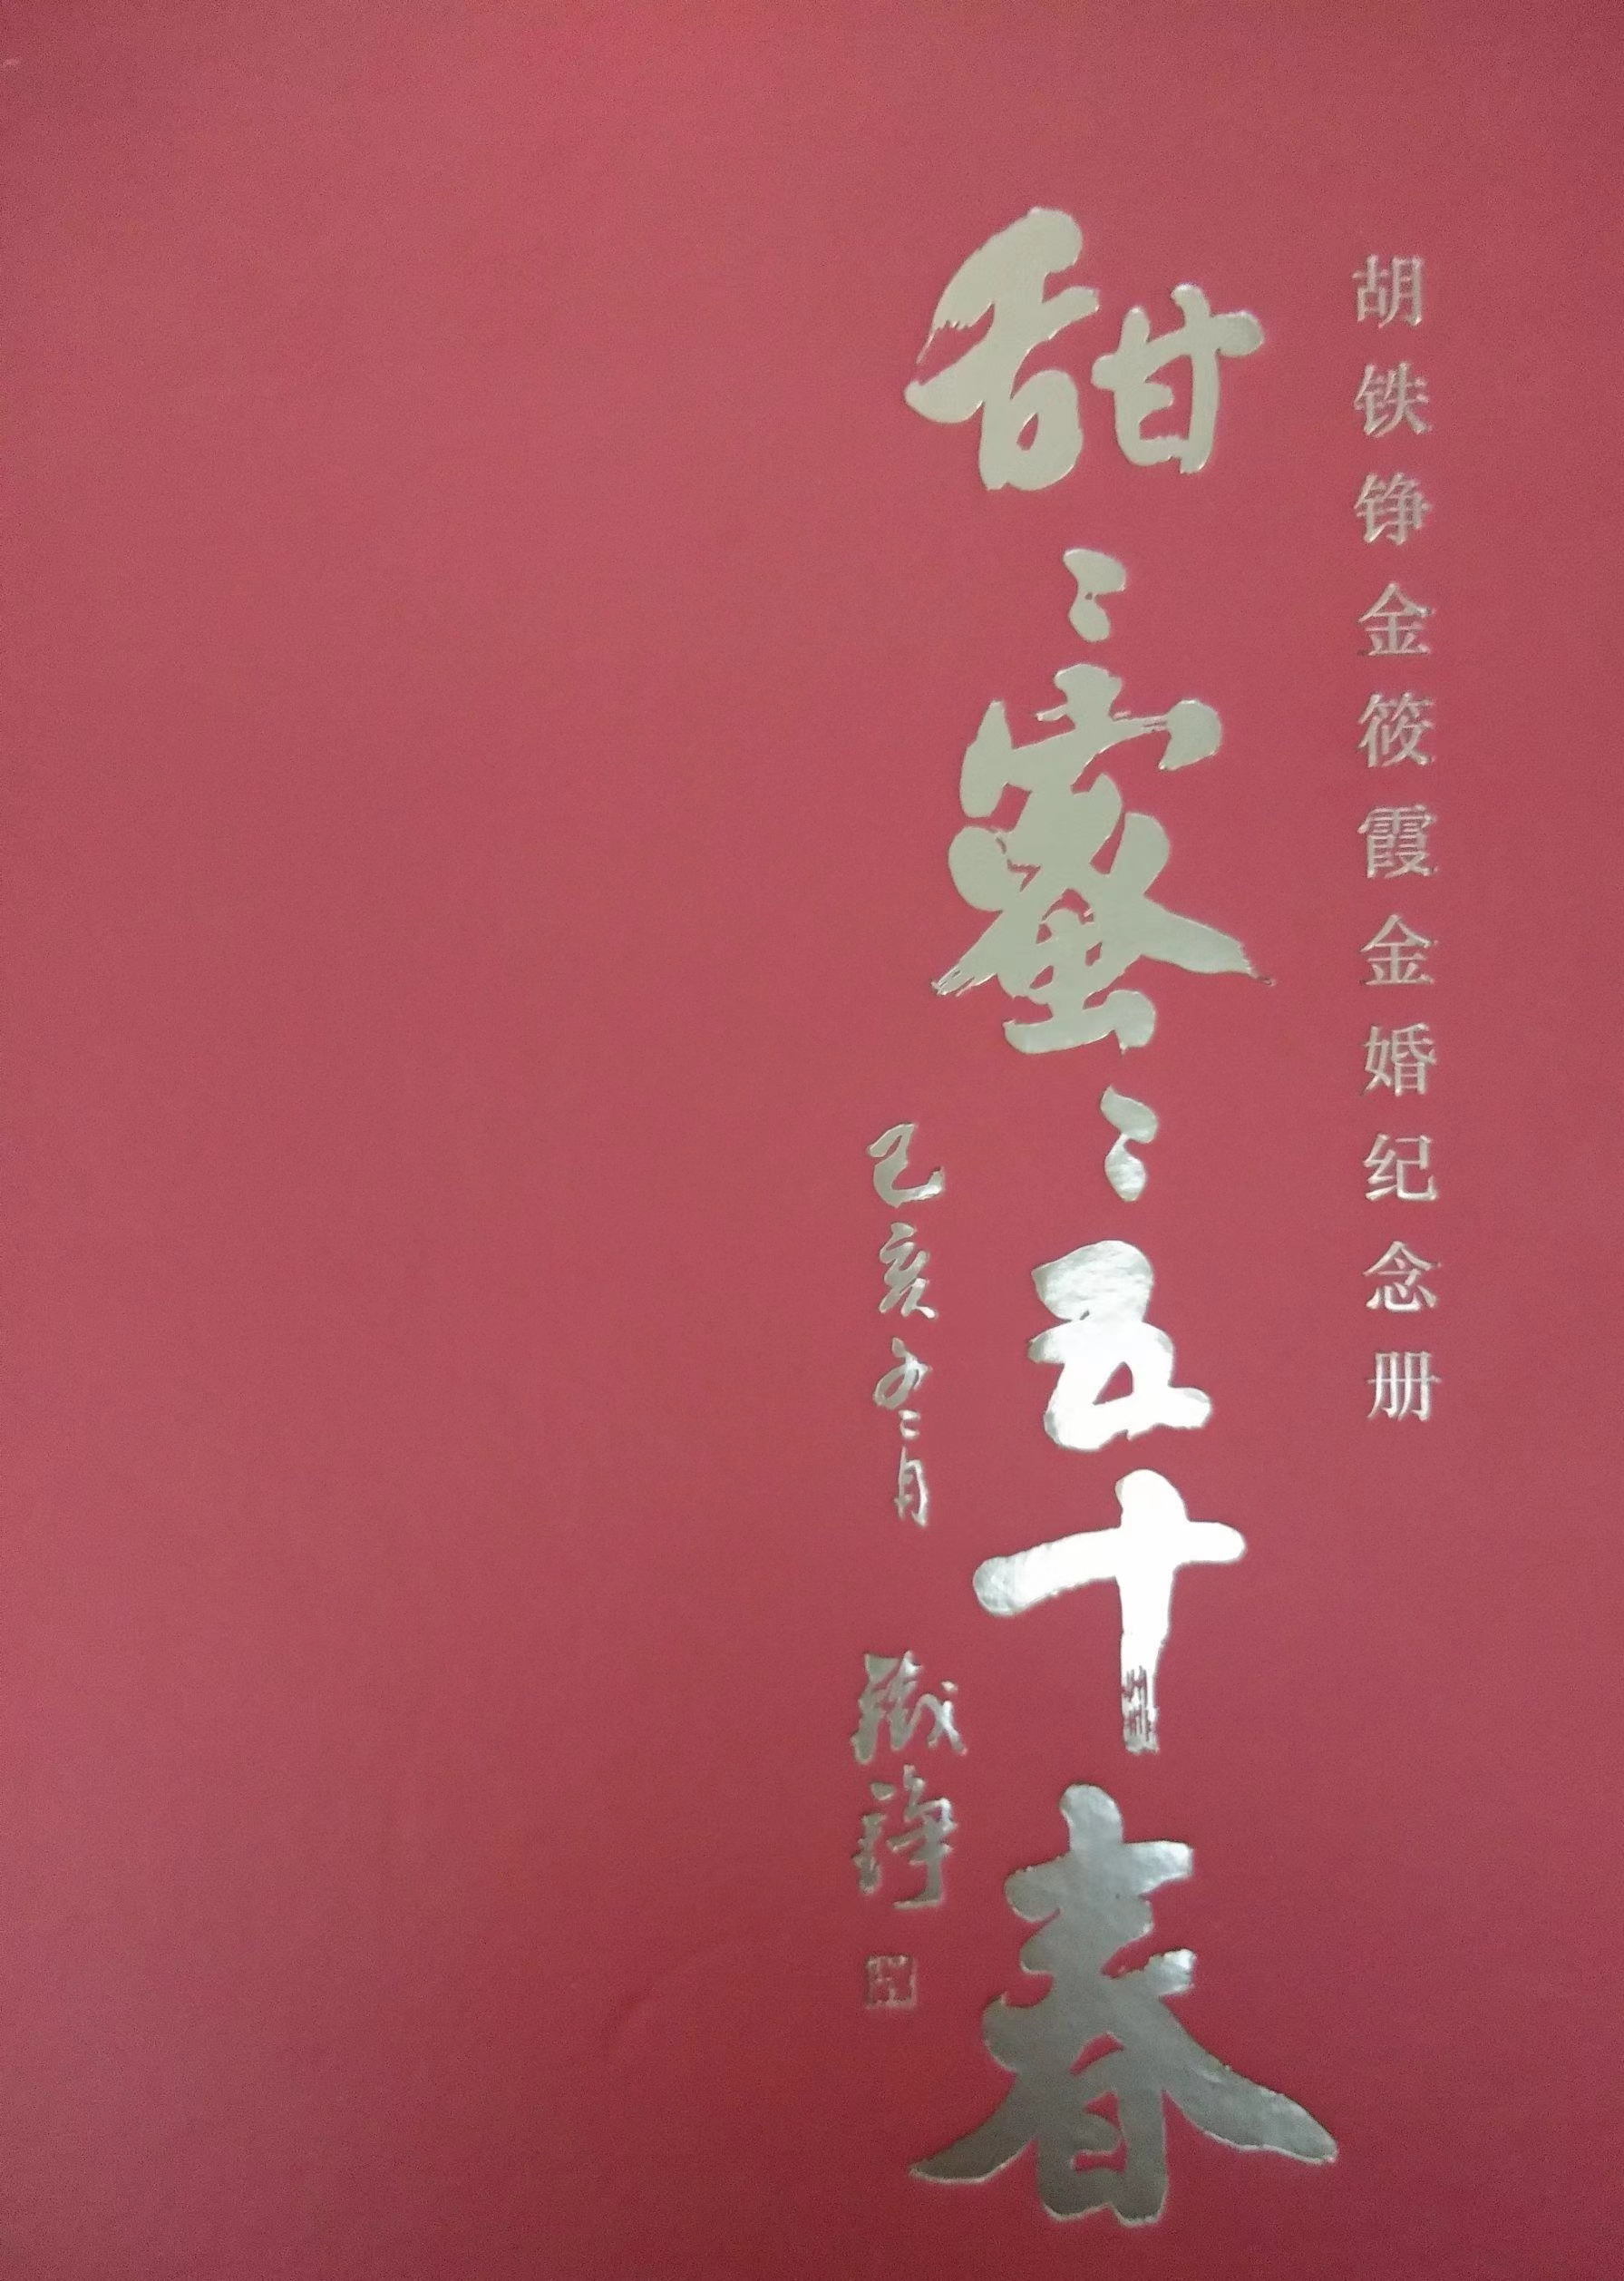 胡铁铮金筱霞金婚纪念册
甜〻蜜〻五十春
己亥冬月
鐵錚